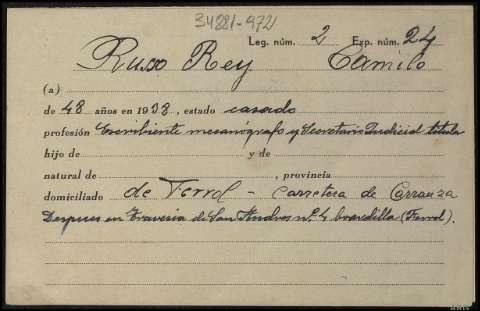 34281-972
Leg. núm. 2 Exp. núm. 24
Russo Rey Camilo
(a)
de 48 años en 1938, estado casado
profesión Escribiente mecanógrafo y Secretario Judicial titular
hijo de y de
natural de , provincia
domiciliado de Ferrol - Carretera de Carranza
Despues en Travesia de San Andres nº 4 boardilla (Ferrol).